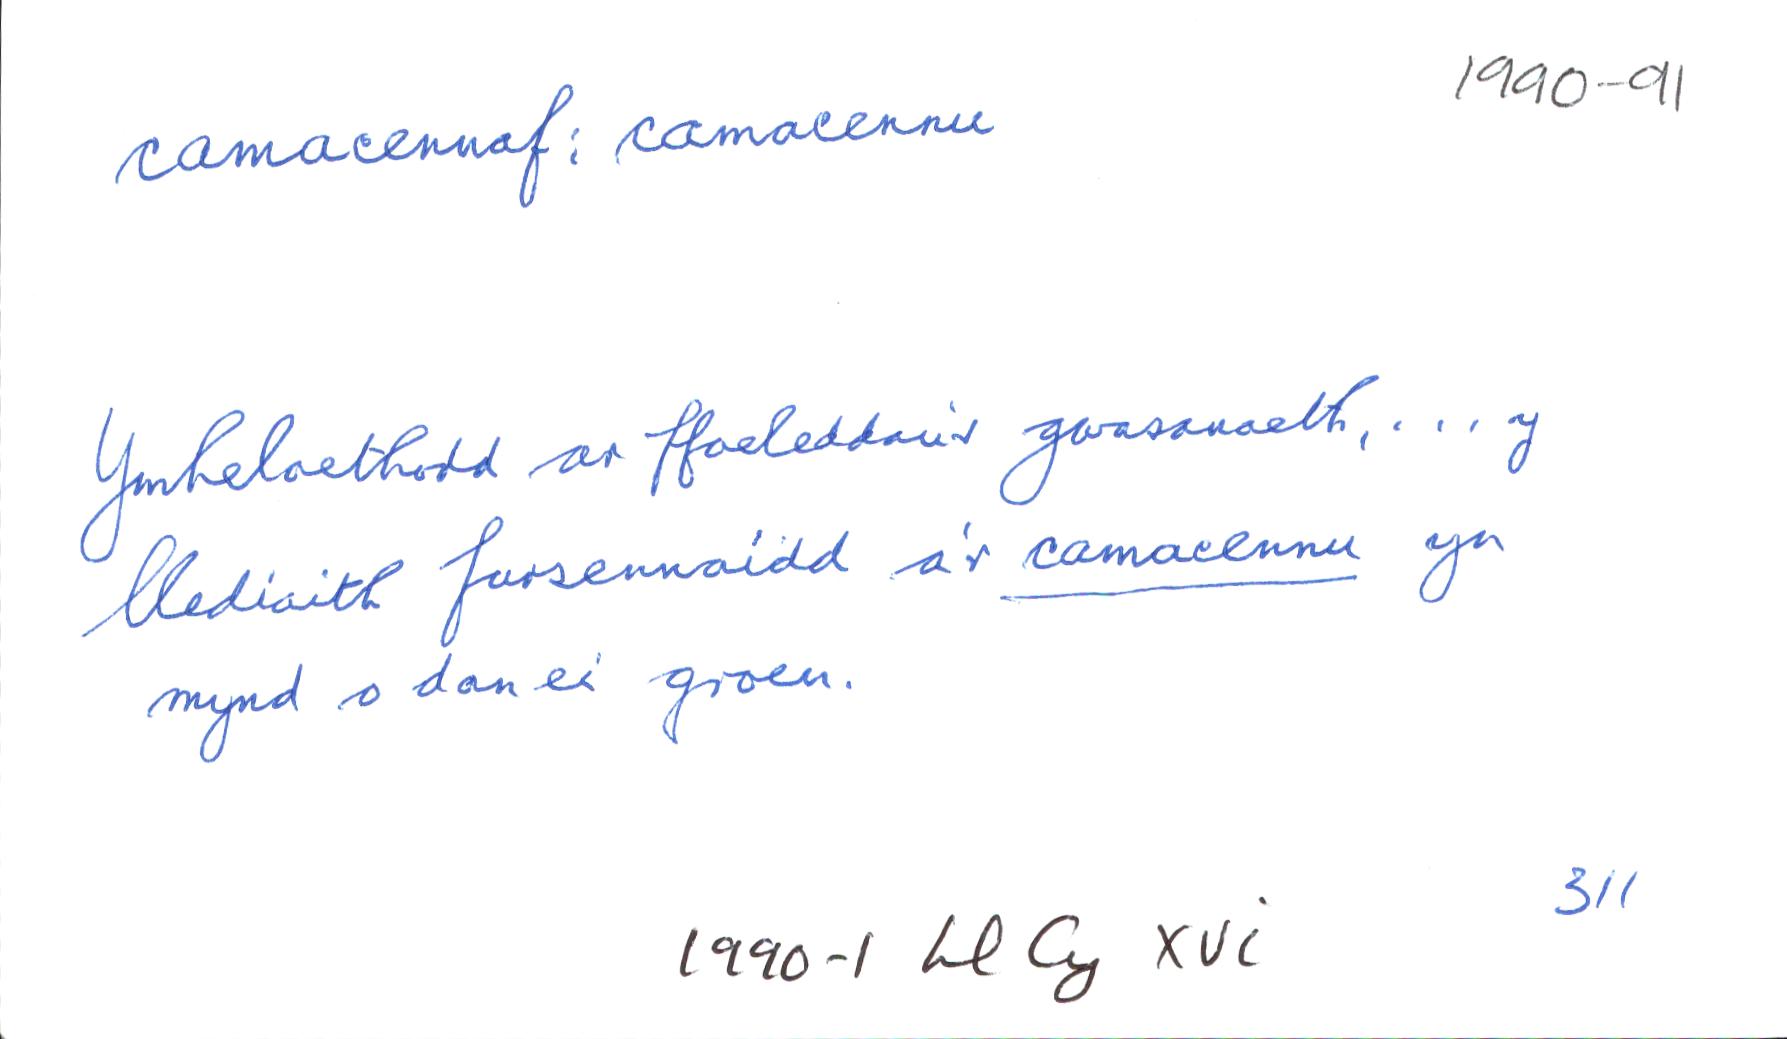 1990-91
camacennaf: camacennu
Ymhelaethodd ar ffaeleddau'r gwasanaeth, .... y
llediaith fursennaidd a'r camacennu yn
mynd o dan ei groen.
311
1990-1 Ll Cy xvi